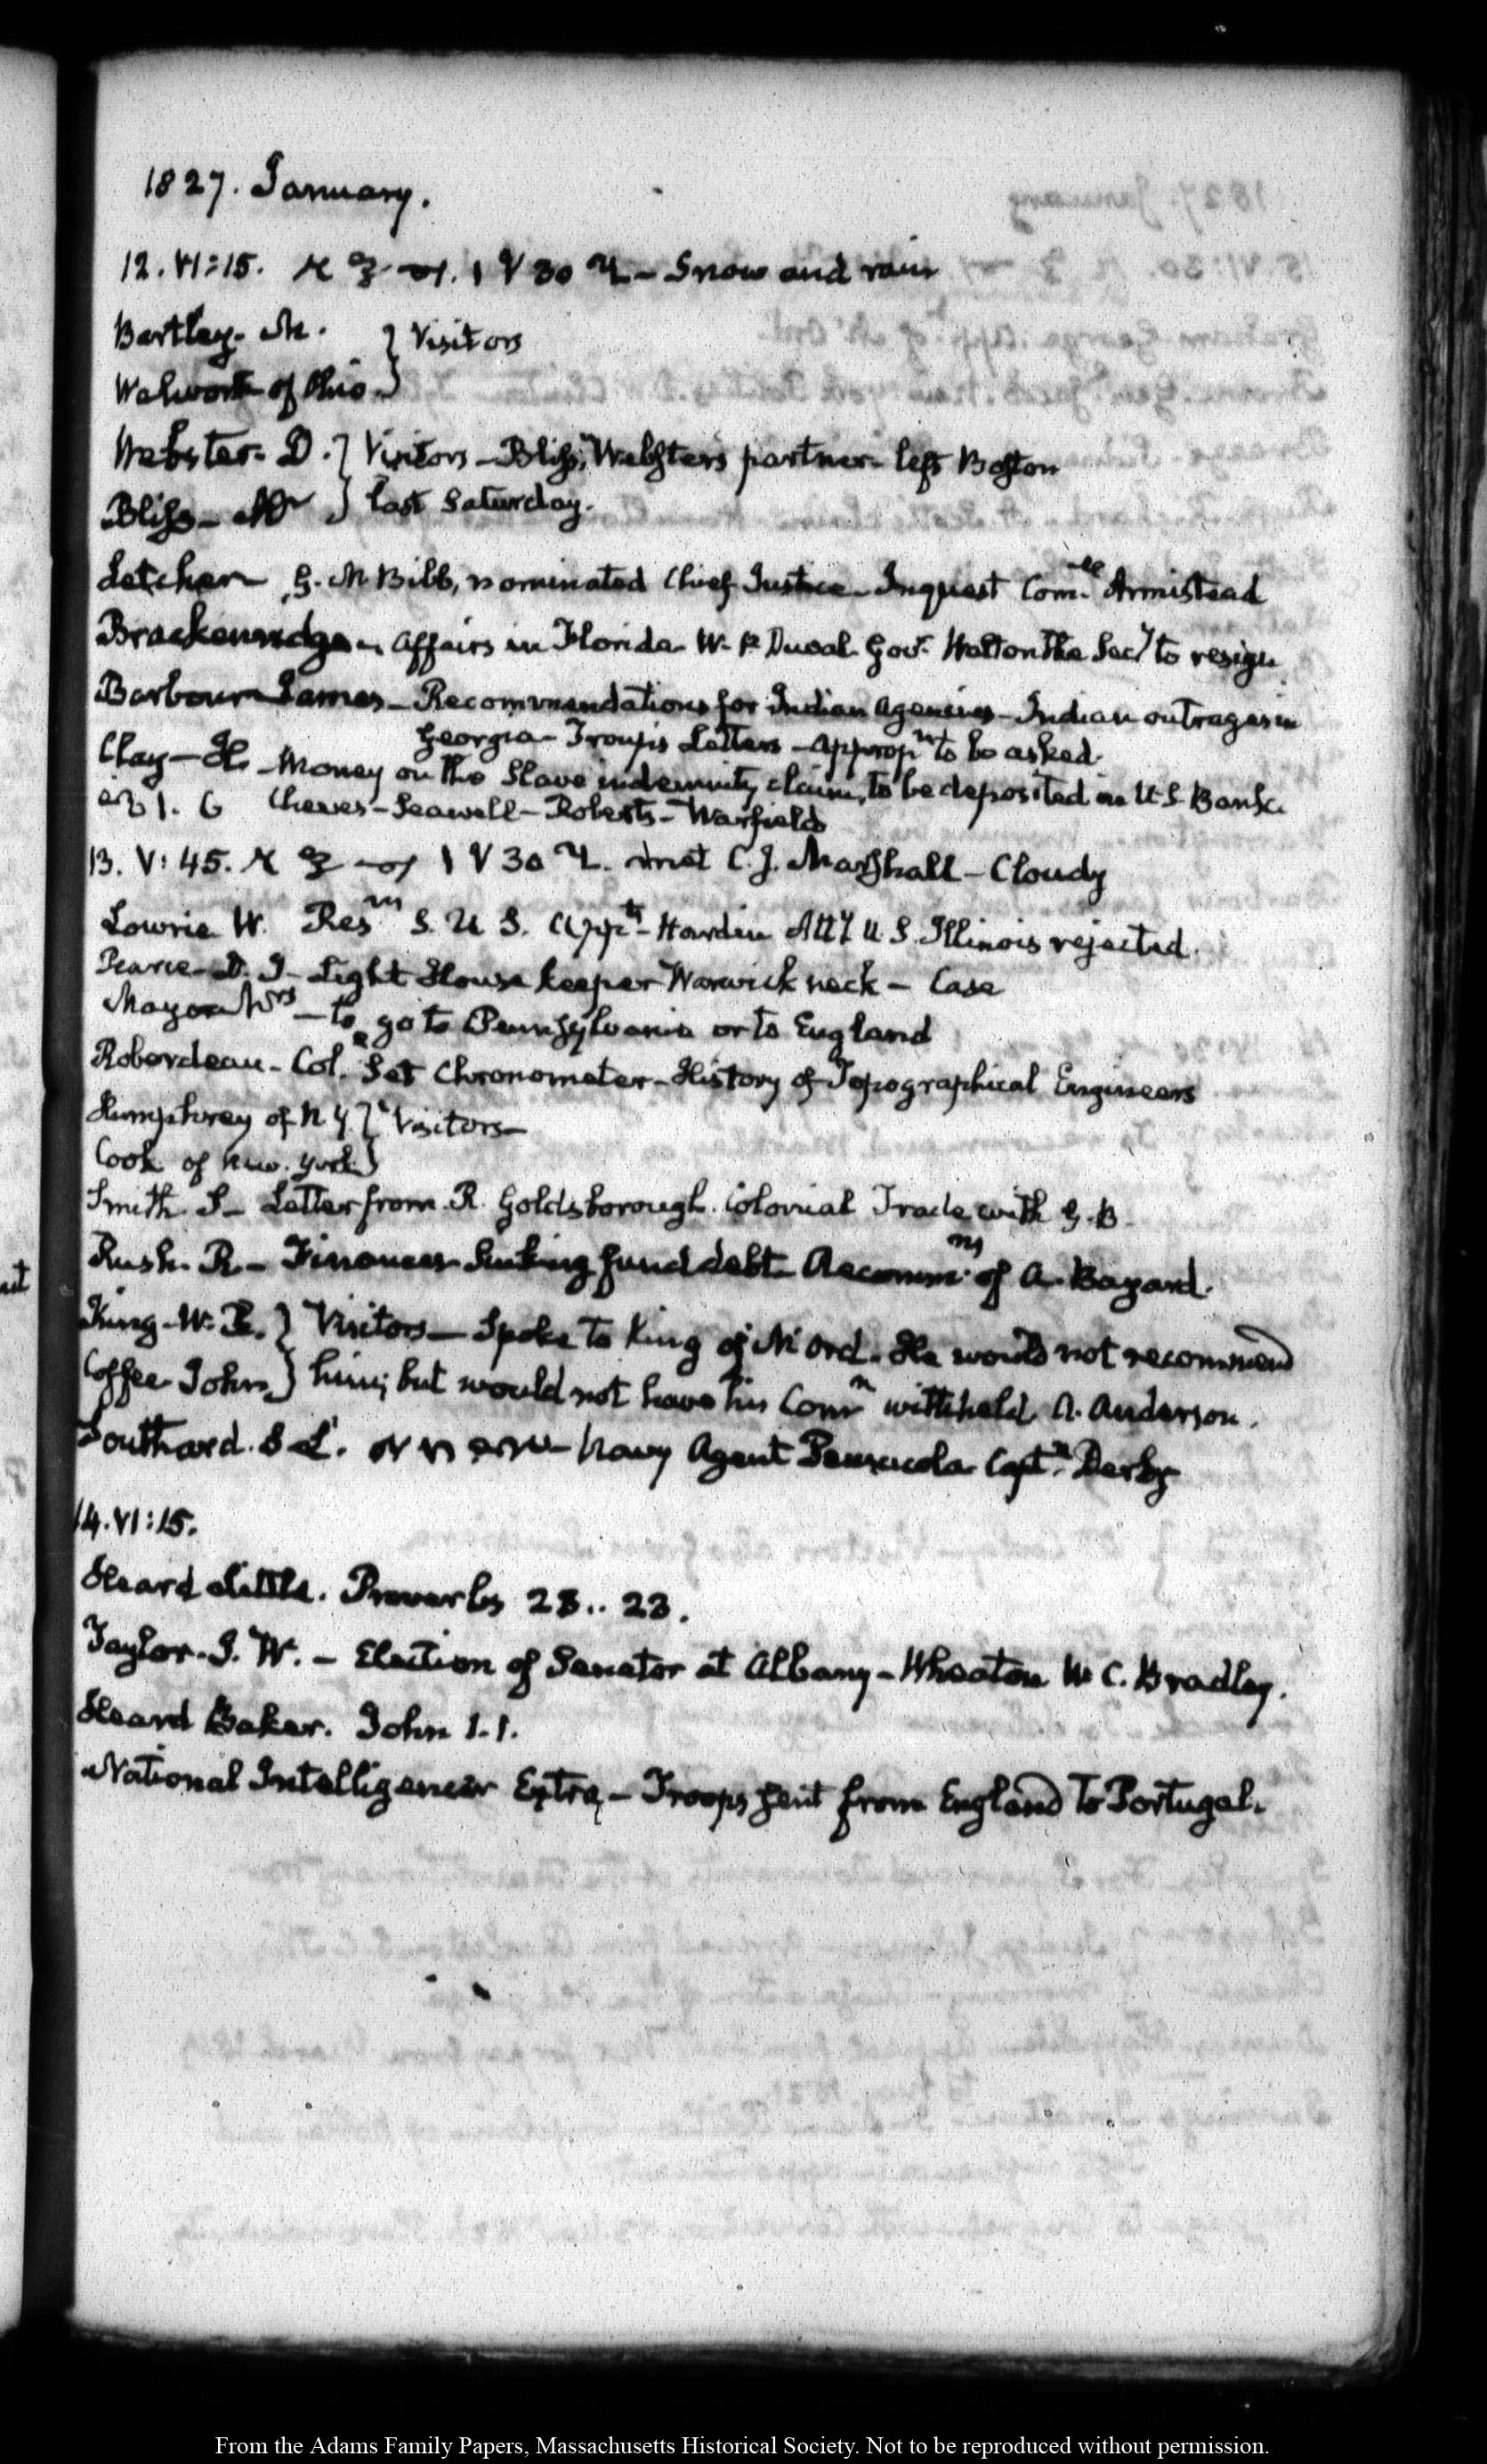 1827. January.
12. VI:15. 1 V 30 – Snow and rain
Bartley. M. } Visitors
Walworth of Ohio. }
Webster. D. } Visitors – Bliss, Webster's partner left Boston
Bliss – Mr } last Saturday.
Letcher G. M Bibb, nominated Chief Justice – Inquest Com.ee Armistead
Brackenridge – Affairs in Florida W. P Duval Govr. Walton the Secy to resign
Barbour James – Recommendations for Indian Agencies – Indian outrages in
Georgia – Troup's Letters – Approp.n to be asked.
Clay – H. – Money on the Slave indemnity claims, to be deposited in U.S. Bank.
1. 6 Cheves – Seawell – Roberts – Warfield
13. V:45. 1 V 30 met C. J. Marshall – Cloudy
Lowrie W. Resn S. U S. Appt – Hardin Atty U.S. Illinois rejected.
Pearce – D. J – Light House keeper Warwick neck – Case
Mayo Mrs – to go to Pennsylvania or to England
Roberdeau – Col. Set Chronometer – History of Topographical Engineers
Humphrey of N Y. } Visitors –
Cook of New. York }
Smith S – Letter from R. Goldsborough. Colonial Trade with G. B.
Rush. R – Finances Sinking fund debt Recommn of A. Bayard.
King – W. R. } Visitors – Spoke to King of M'Ord. He would not recommend
Coffee John } him; but would not have his Comn withheld. A. Anderson.
Southard. S L. Navy Agent Pensacola Captn. Derby
14. VI:15.
Heard Little. Proverbs 23.. 23.
Taylor. J. W. – Election of Senator at Albany – Wheaton W. C. Bradley.
Heard Baker. John 1. 1.
National Intelligencer Extra – Troops sent from England to Portugal.
From the Adams Family Papers, Massachusetts Historical Society. Not to be reproduced without permission.